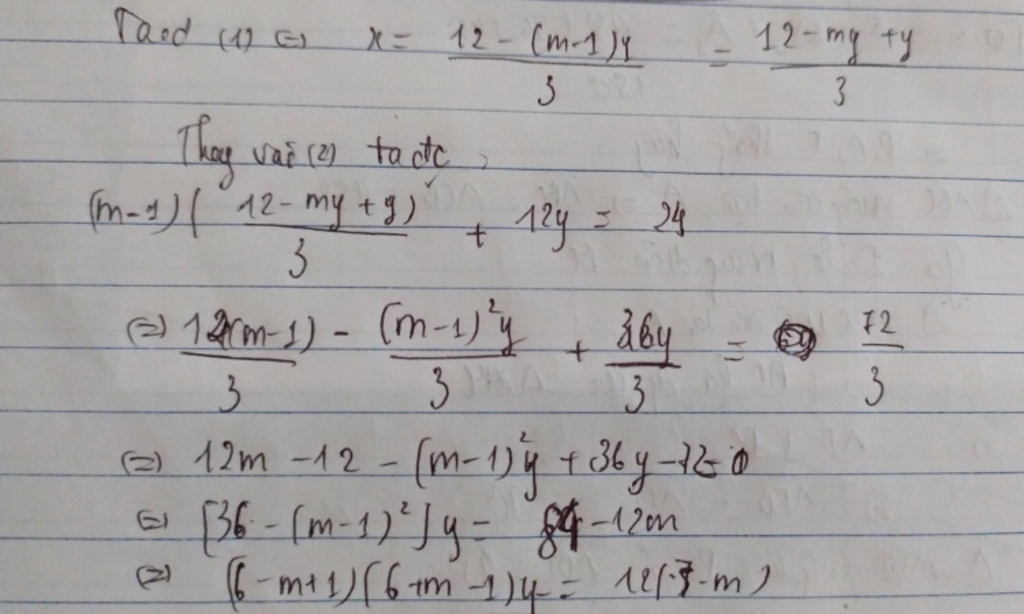 Ta có (1) (=) x = \frac{12 - (m-1)y}{3} = \frac{12 - my + y}{3}
Thay vào (2) ta đc,
(m-1)(\frac{12 - my + y)}{3} + 12y = 24
(=) \frac{12(m-1)}{3} - \frac{(m-1)^2y}{3} + \frac{36y}{3} = \frac{72}{3}
(=) 12m - 12 - (m-1)^2y + 36y - 72 = 0
(=) [36 - (m-1)^2]y = 84 - 12m
(=) (6-m+1)(6+m-1)y = 12(7-m)